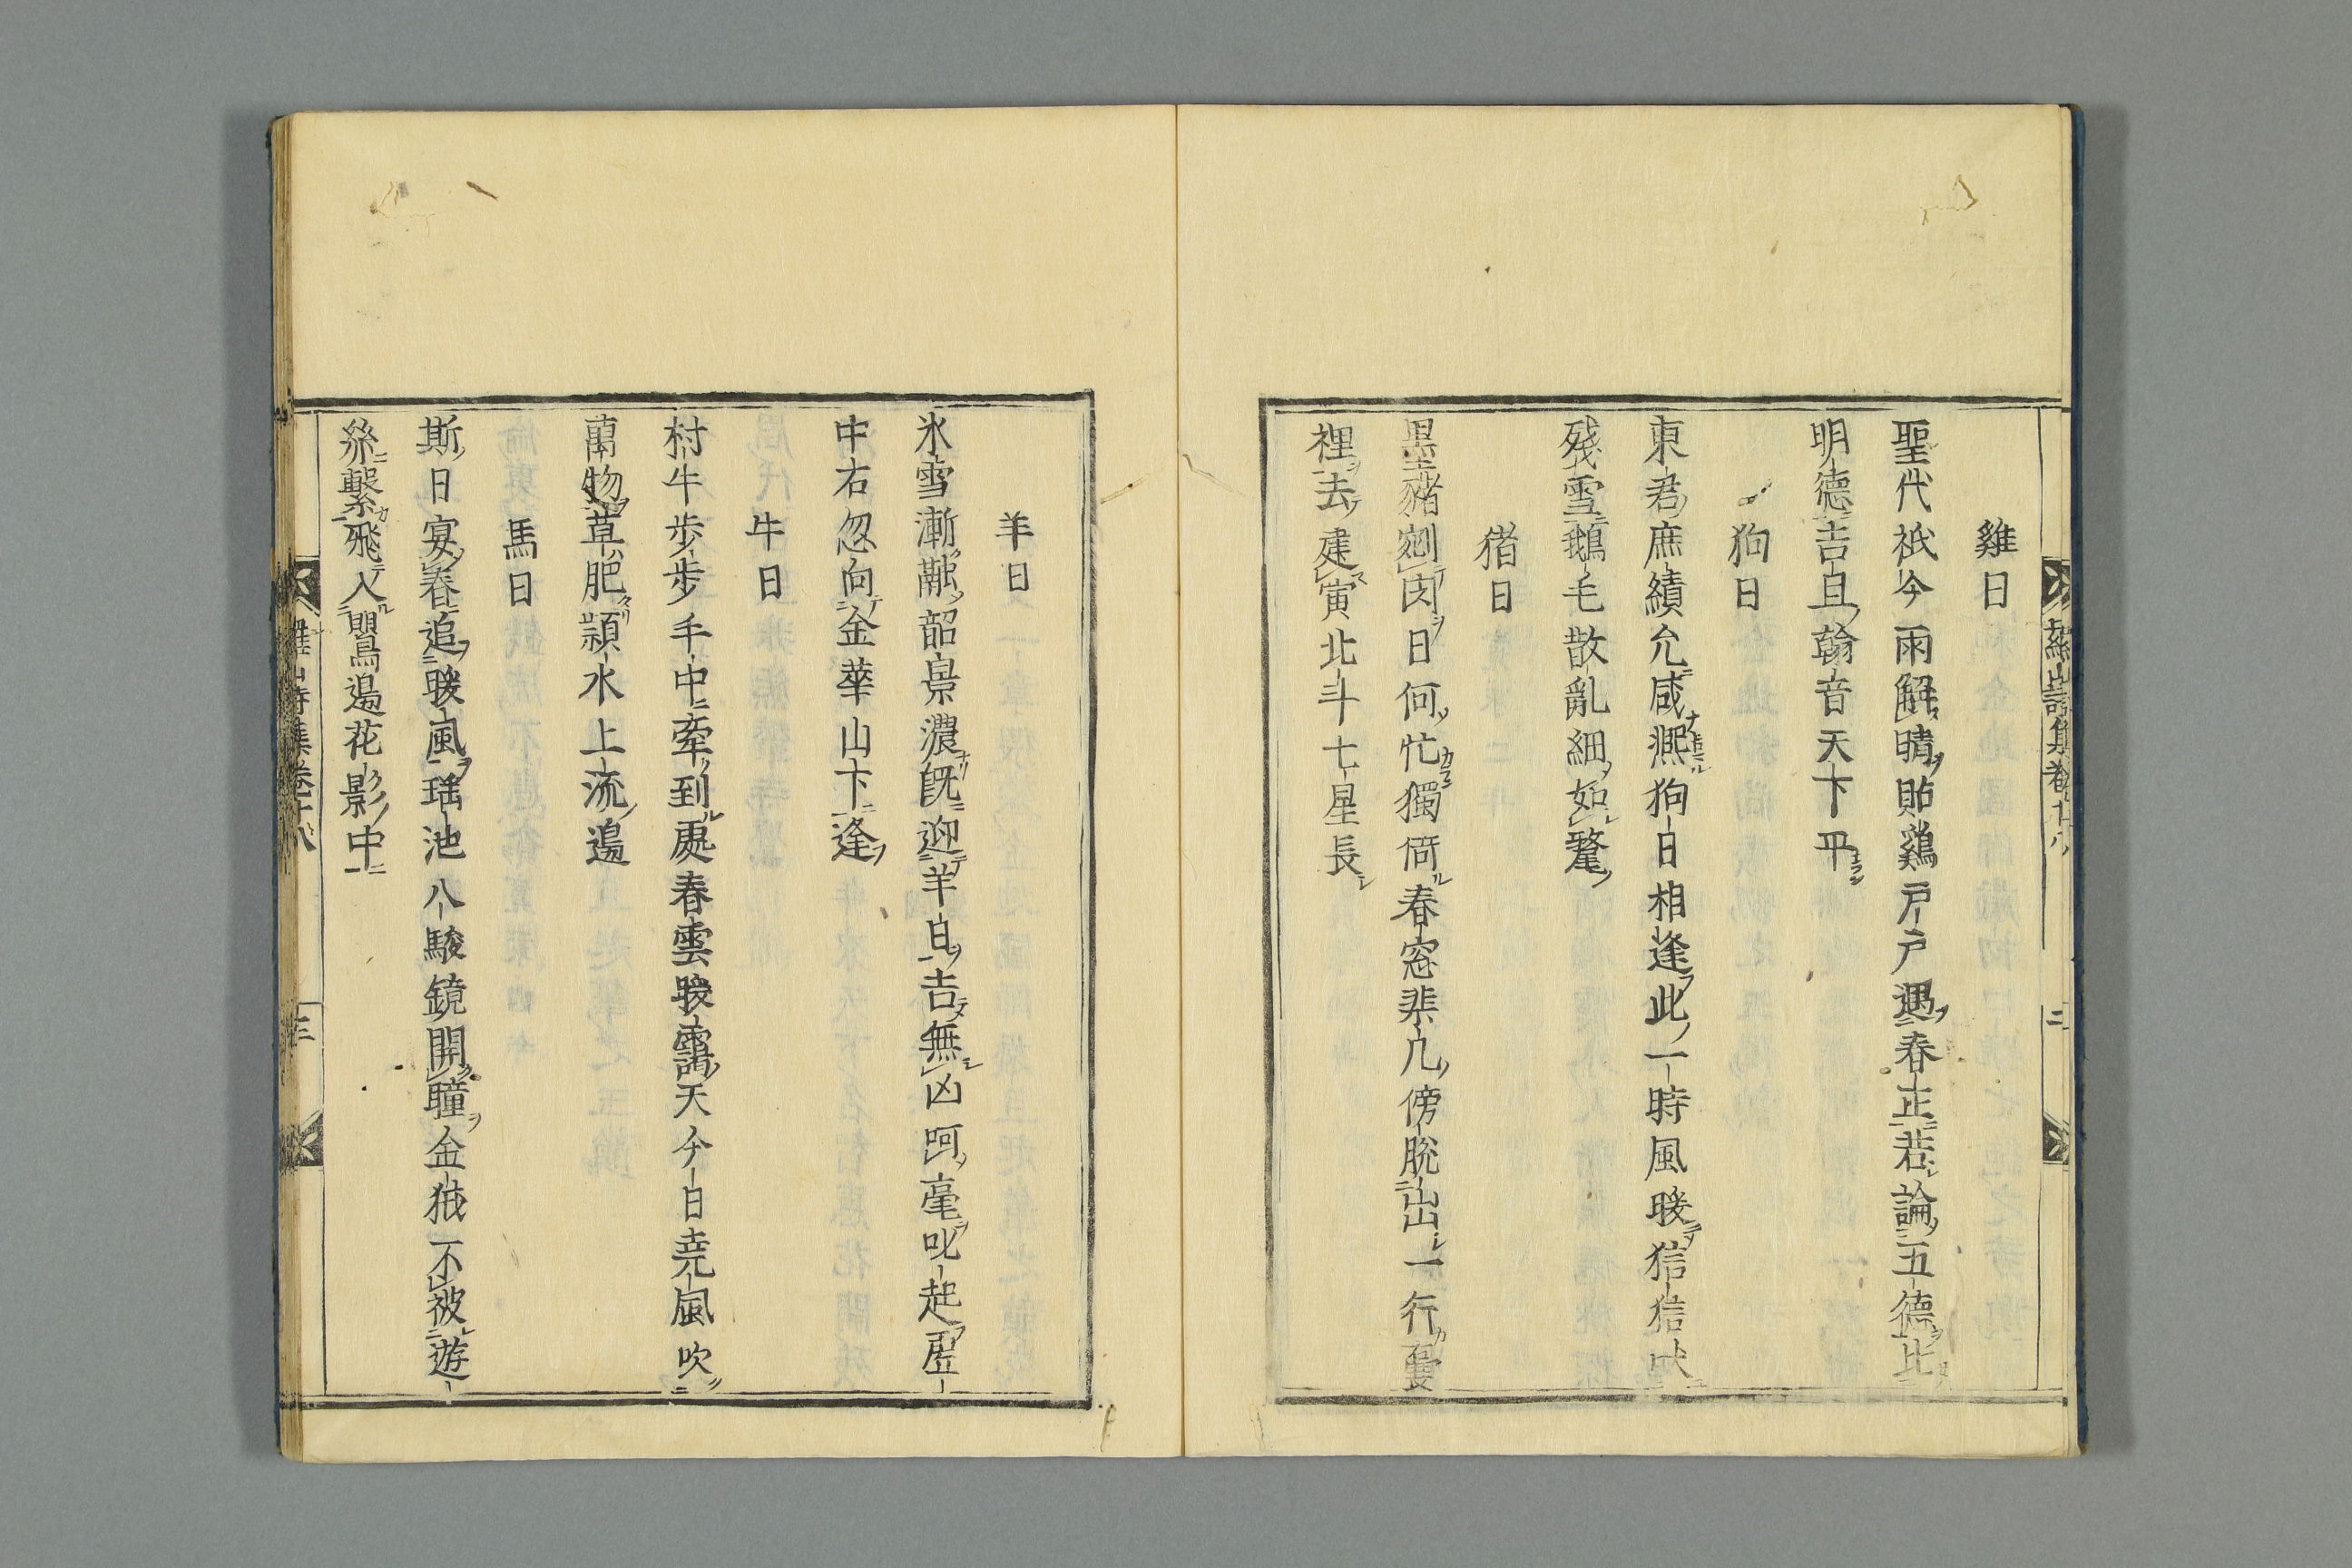 羅山詩集卷十八
二
雞日
聖代祇今雨解晴貼鷄戸戸遇春正若論五德比
明德吉旦翰音天下平
狗日
東君庶績允咸熈狗日相逢此一時風暖狺狺吠
殘雪鵝毛散亂細如氂
猪日
黒豬剜肉日何忙獨倚春窓棐几傍脱出一行
裡去建寅北斗七星長
羊日
氷雪漸融韶景濃既迎羊日吉無凶呵毫叱起
中右忽向金華山下逢
牛日
村牛歩歩手中牽到處春雲暖靄天今日堯風吹
萬物草肥潁水上流邉
馬日
斯日宴春追暖風瑶池八駿鏡開瞳金狘不被遊
絲繫飛入鸎邉花影中
羅山詩集卷十八
三